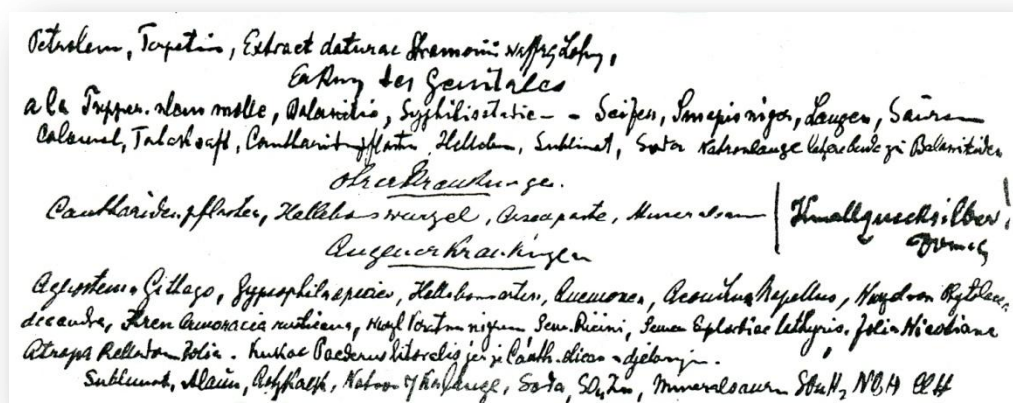 Petroleum, Terpetin, Extract daturae Stramonii
Erkrng des Genitales
a la Tripper. ulcus molle, Balanitis, Syphilisstadie - - Seifen, Sinapis niger, Laugen, Säuren
Calomel, Tabaksaft, Cantharidenpflaster, Hellebor, Sublimat, Soda Natronlauge zu Balanitiden
Ohrerkrankungen.
Cantharidenpflaster, Helleboruswurzel, Arsenpaste, Mineralsäuren | Knallquecksilber!
Augenerkrankungen
Agrostemma Githago, Gypsophila species, Helleborusarten, Anemonen, Aconitum Napellus, Phytolacca
decandra, Kren Armoracia rusticana, Veratrum nigrum Sem. Ricini, Semen Euphorbiae lathyris, Folia Nicotiana
Atropa Belladon Folia. Paederus litoralis jer je Canth.
Sublimat, Alaun, Aetzkalk, Natron Kalilauge, Soda, SO₄Zn, Mineralsäuren SO₄H₂ NO₃H ClH